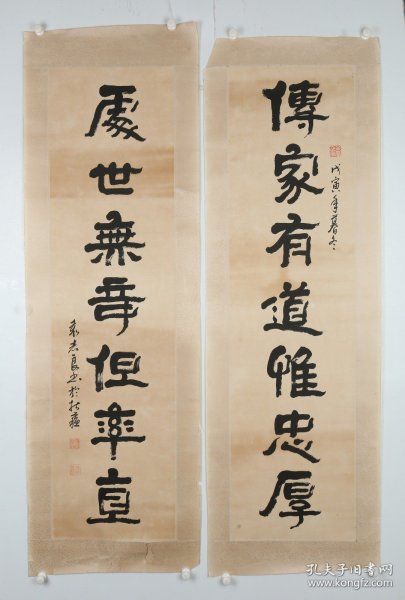 傳家有道惟忠厚
戊寅年暮冬
處世無奇但率直
袁志良书於
孔夫子旧书网